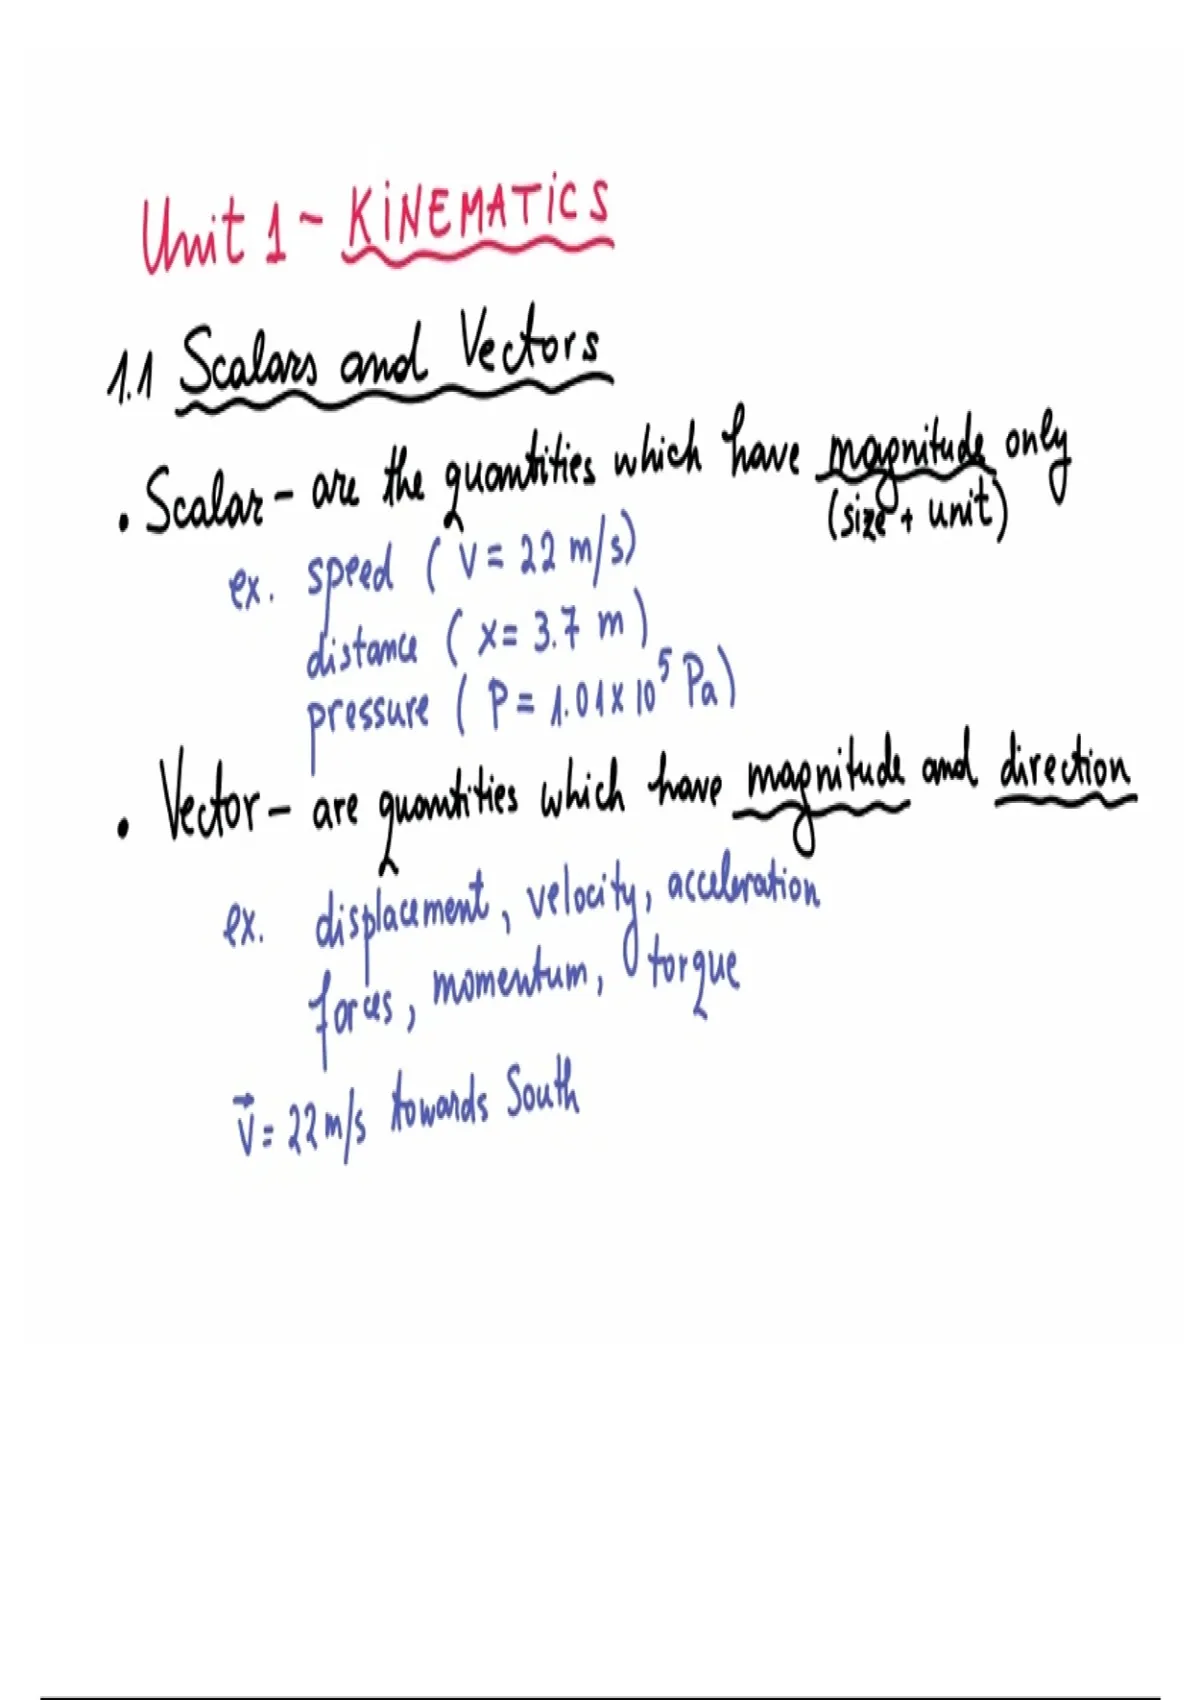 Unit 1 - KINEMATICS
1.1 Scalars and Vectors
• Scalar - are the quantities which have magnitude only
(size + unit)
ex. speed ( v = 22 m/s)
distance ( x = 3.7 m )
pressure ( P = 1.01 x 10⁵ Pa)
• Vector - are quantities which have magnitude and direction
ex. displacement, velocity, acceleration
forces, momentum, torque
v⃗ = 22 m/s towards South